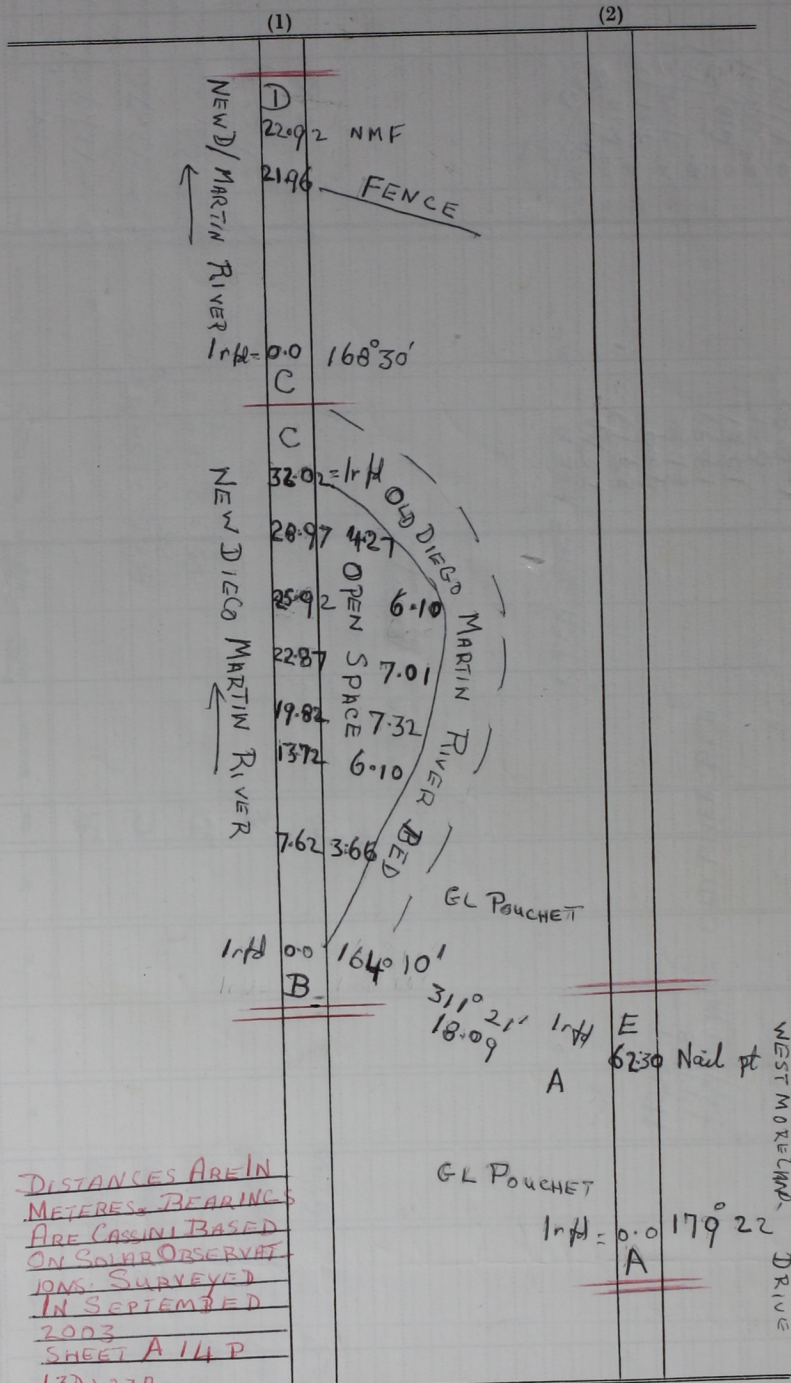 (1)
(2)
D
22.92 NMF
21.96 FENCE
NEW D/MARTIN RIVER
Irfd = 0.0 168°30'
C
C
32.02 = Irfd
28.97 4.27
25.92 6.10
22.87 7.01
19.82 7.32
13.72 6.10
7.62 3.66
OPEN SPACE
OLD DIEGO MARTIN RIVER BED
NEW DIEGO MARTIN RIVER
GL POUCHET
Irfd 0.0 164° 10'
B
311° 21'
18.09
Irfd E
A 62.30 Nail pt
GL POUCHET
Irfd = 0.0 179° 22
A
DRIVE
DISTANCES ARE IN
METERES. BEARINGS
ARE CASSINI BASED
ON SOLAR OBSERVAT-
IONS. SURVEYED
IN SEPTEMBED
2003
SHEET A 14 P